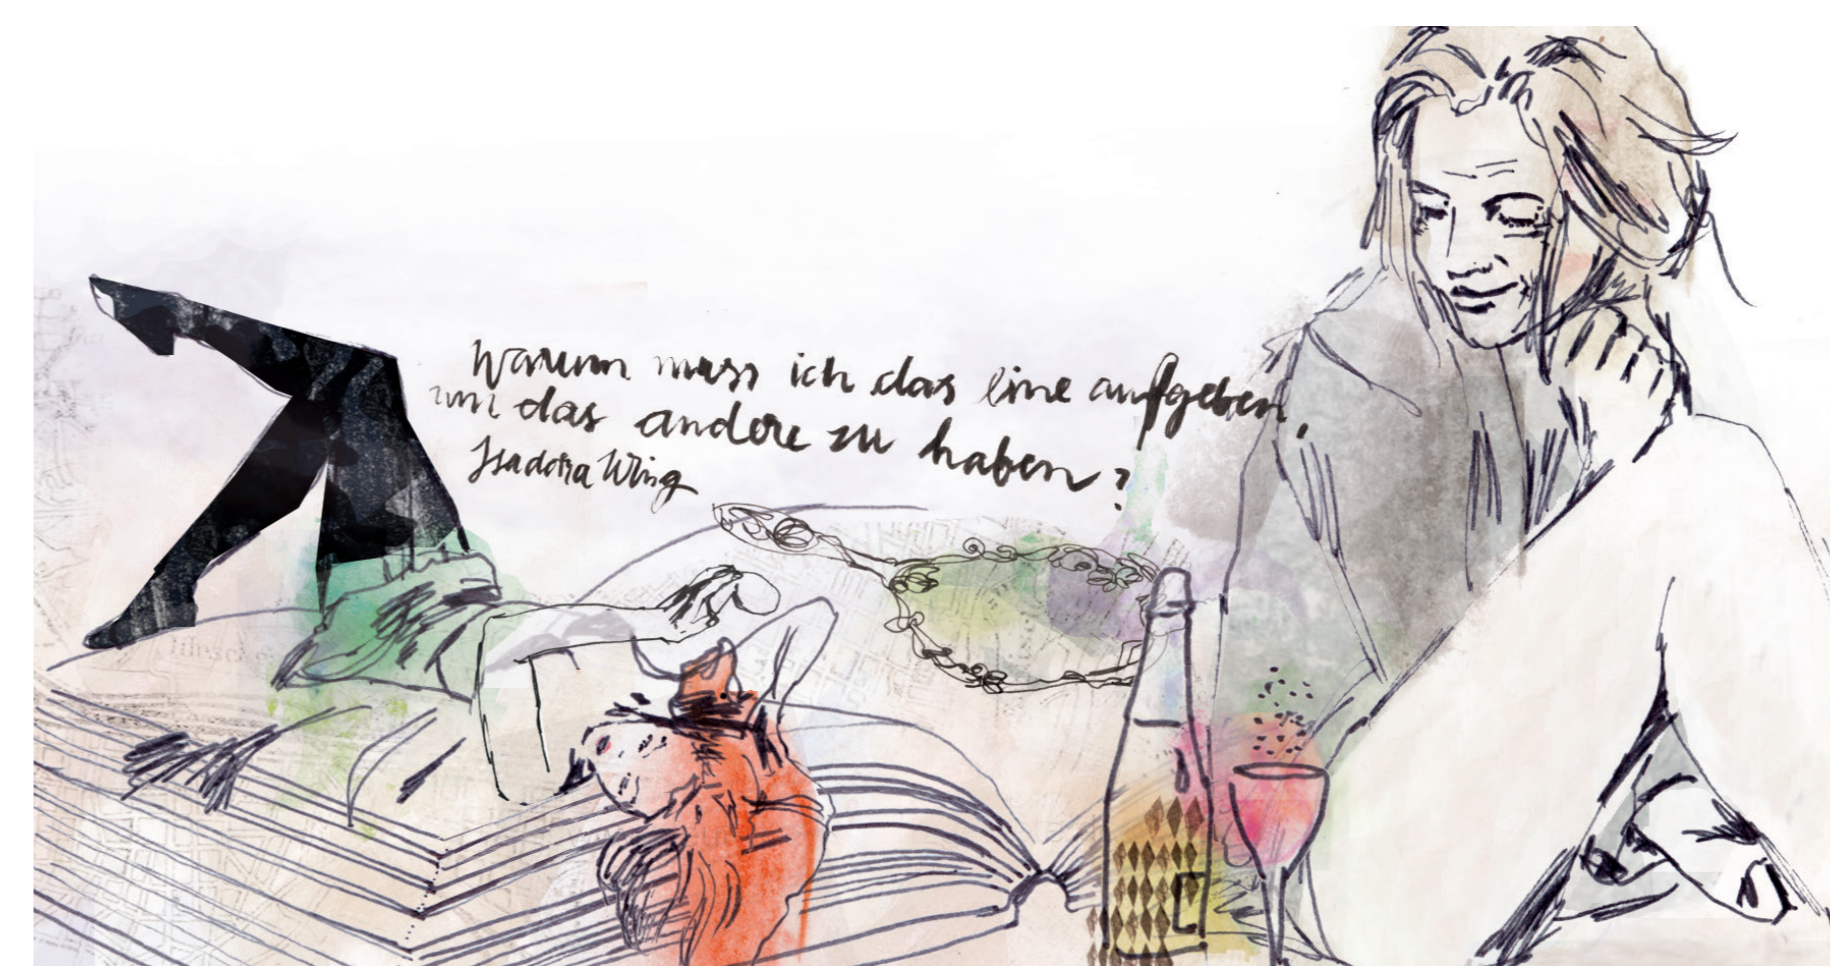 Warum muss ich das eine aufgeben,
um das andere zu haben?
Isadora Wing